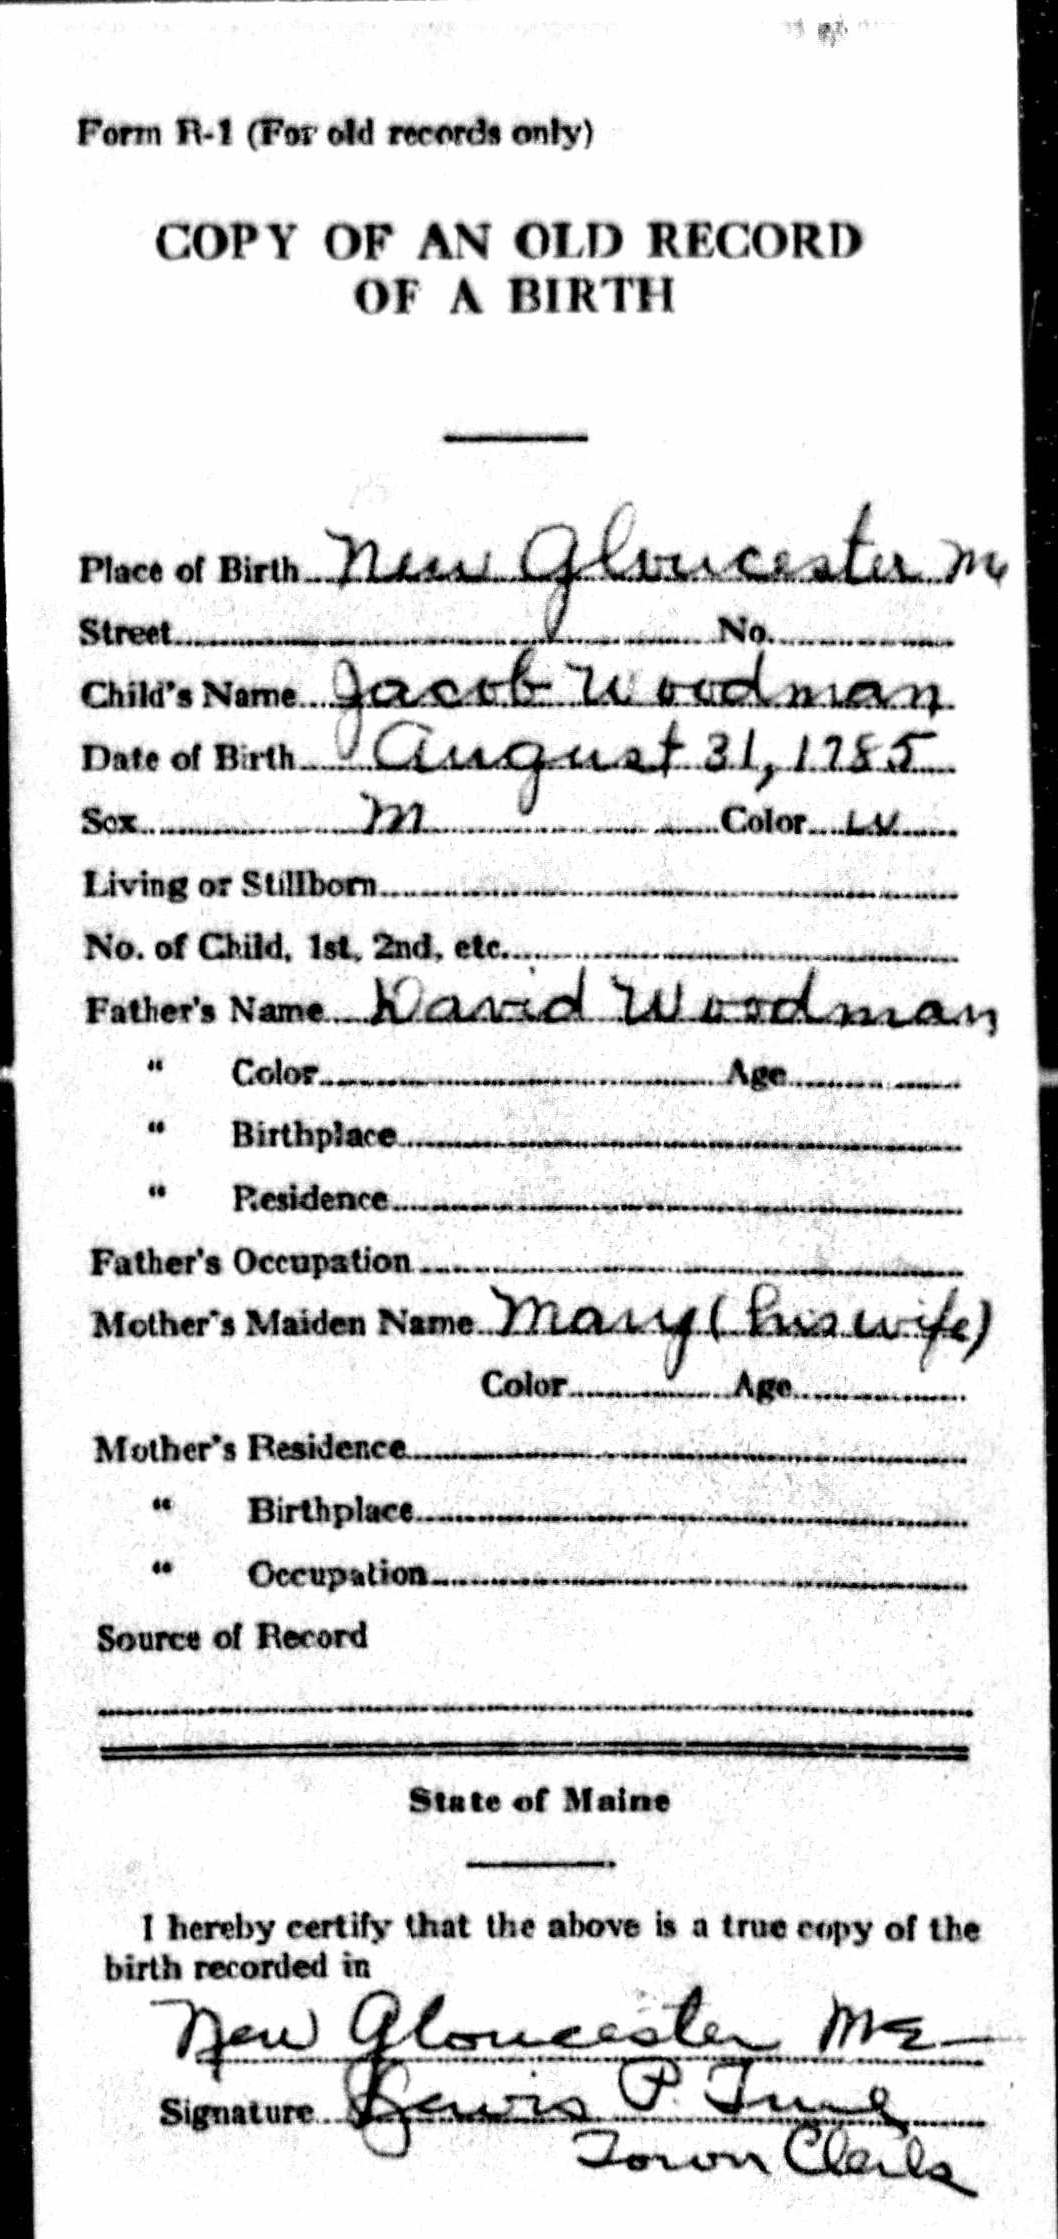 Form R-1 (For old records only)
COPY OF AN OLD RECORD
OF A BIRTH
Place of Birth New Gloucester Me
Street No.
Child's Name Jacob Woodman
Date of Birth August 31, 1785
Sex M Color W
Living or Stillborn
No. of Child, 1st, 2nd, etc.
Father's Name David Woodman
" Color Age
" Birthplace
" Residence
Father's Occupation
Mother's Maiden Name Mary (his wife)
Color Age
Mother's Residence
" Birthplace
" Occupation
Source of Record
State of Maine
I hereby certify that the above is a true copy of the
birth recorded in
New Gloucester Me
Signature Lewis P.
Town Clerk